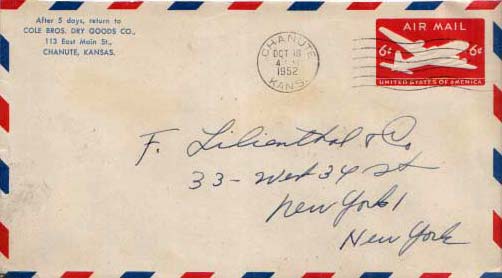 After 5 days, return to
COLE BROS. DRY GOODS CO.,
113 East Main St.,
CHANUTE, KANSAS.
CHANUTE
OCT 18
1952
KANS.
AIR MAIL
6¢ 6¢
UNITED STATES OF AMERICA
F. Lilienthal & Co.
33 - West 34 St
New York 1
New York